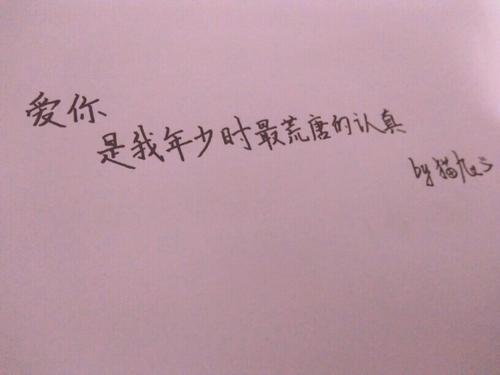 爱你
是我年少时最荒唐的认真
by 猫九